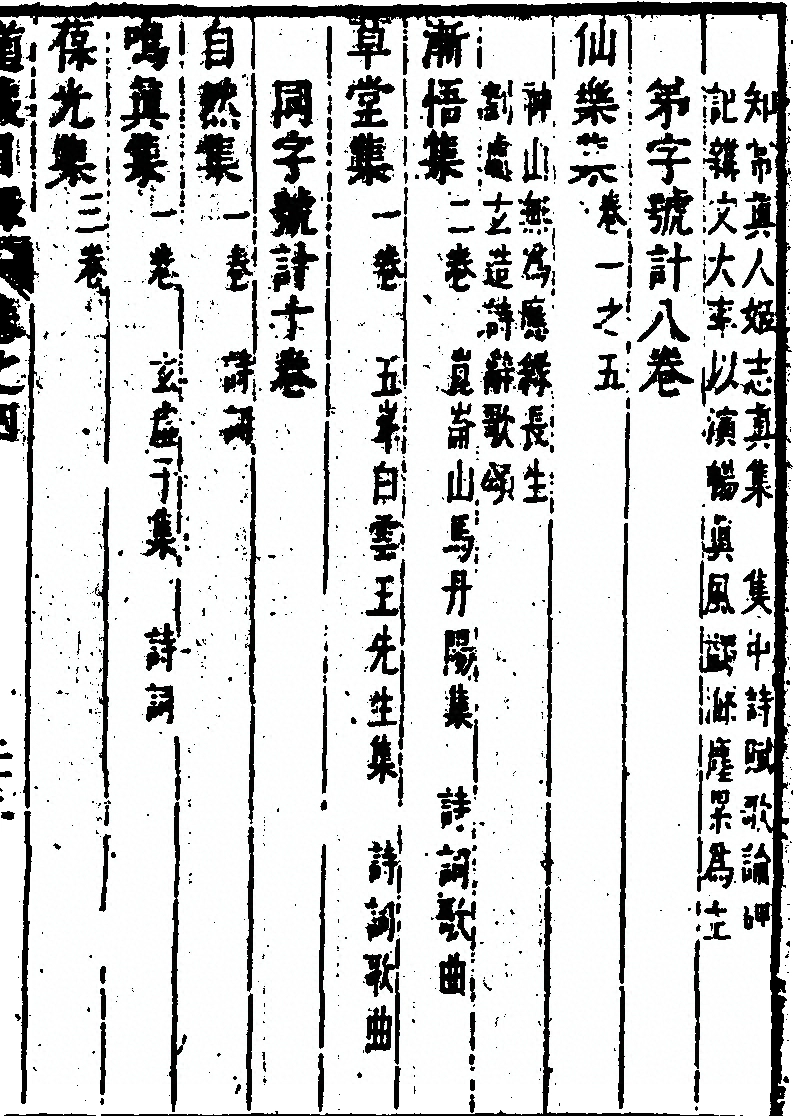 知常真人姬志真集　集中詩賦歌論碑
記雜文大率以演暢真風蠲滌塵累為主
弟字號計八卷
仙樂集　卷一之五
神山無為應緣長生
劉處玄造詩辭歌頌
漸悟集　二卷　崑崙山馬丹陽集　詩詞歌曲
草堂集　一卷　五峯白雲王先生集　詩詞歌曲
同字號計十卷
自然集　一卷　詩詞
鳴真集　一卷　玄虛子集　詩詞
葆光集　三卷
道藏目錄詳註卷之四